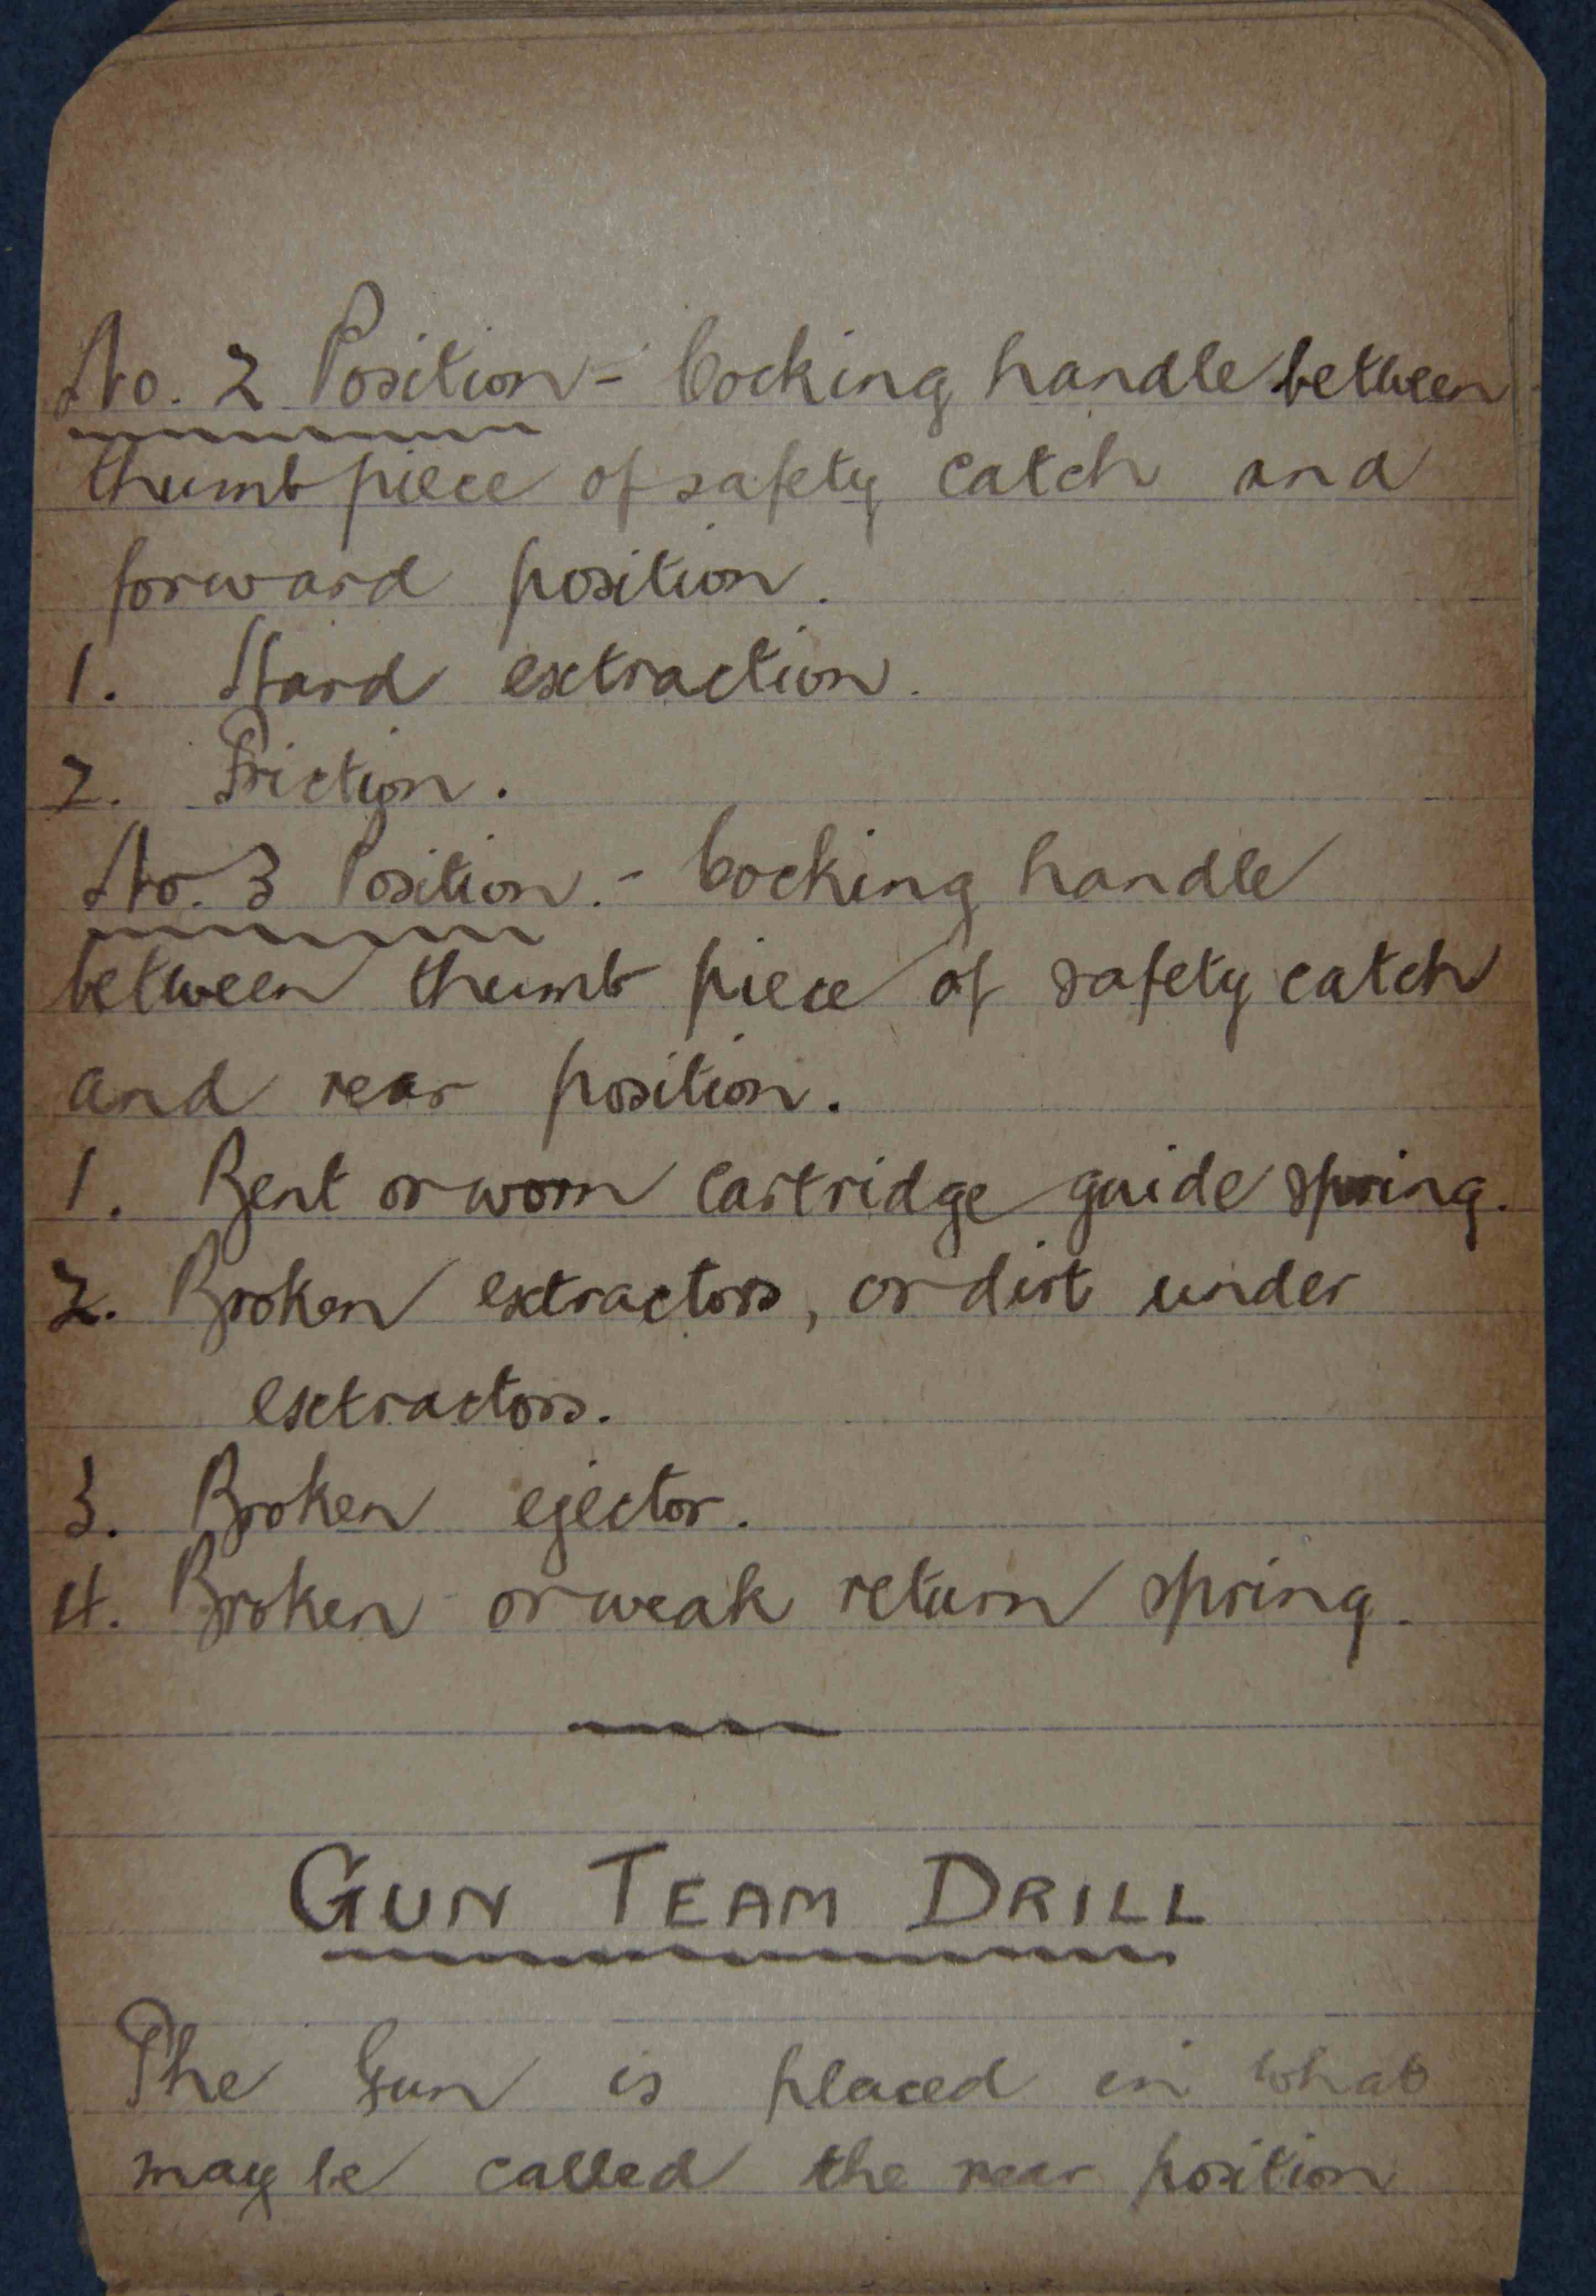 No. 2 Position - Cocking handle between
thumb piece of safety catch and
forward position.
1. Hard extraction.
2. Friction.
No. 3 Position. - Cocking handle
between thumb piece of safety catch
and rear position.
1. Bent or worn cartridge guide spring.
2. Broken extractors, or dirt under
extractors.
3. Broken ejector.
4. Broken or weak return spring.
GUN TEAM DRILL
The Gun is placed in what
may be called the rear position